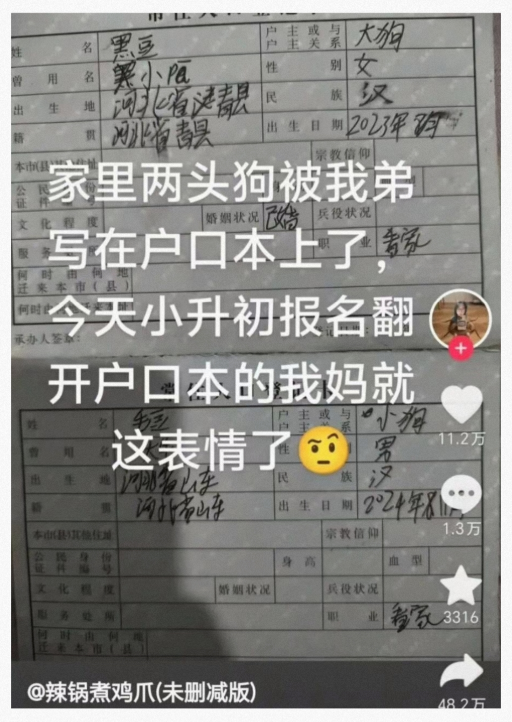 常住人口登记卡
姓名 黑豆 户主或与户主关系 大狗
曾用名 黑小豆 性别 女
出生地 河北省青县 民族 汉
籍贯 河北省青县 出生日期 2023年
本市(县)其他住址 宗教信仰
公民身份证件编号
文化程度 婚姻状况 已婚 兵役状况
服务处所 职业 看家
何时由何地迁来本市(县)
何时由何地迁来本址
承办人签章:
家里两头狗被我弟
写在户口本上了,
今天小升初报名翻
开户口本的我妈就
这表情了🤨
11.2万
常住人口登记卡
姓名 户主或与户主关系 小狗
曾用名 性别 男
出生地 民族 汉
籍贯 出生日期 2024年8
1.3万
本市(县)其他住址 宗教信仰
公民身份证件编号 身高 血型
文化程度 婚姻状况 兵役状况
服务处所 职业 看家
3316
何时由何地迁来本市(县)
@辣锅煮鸡爪(未删减版)
48.2万